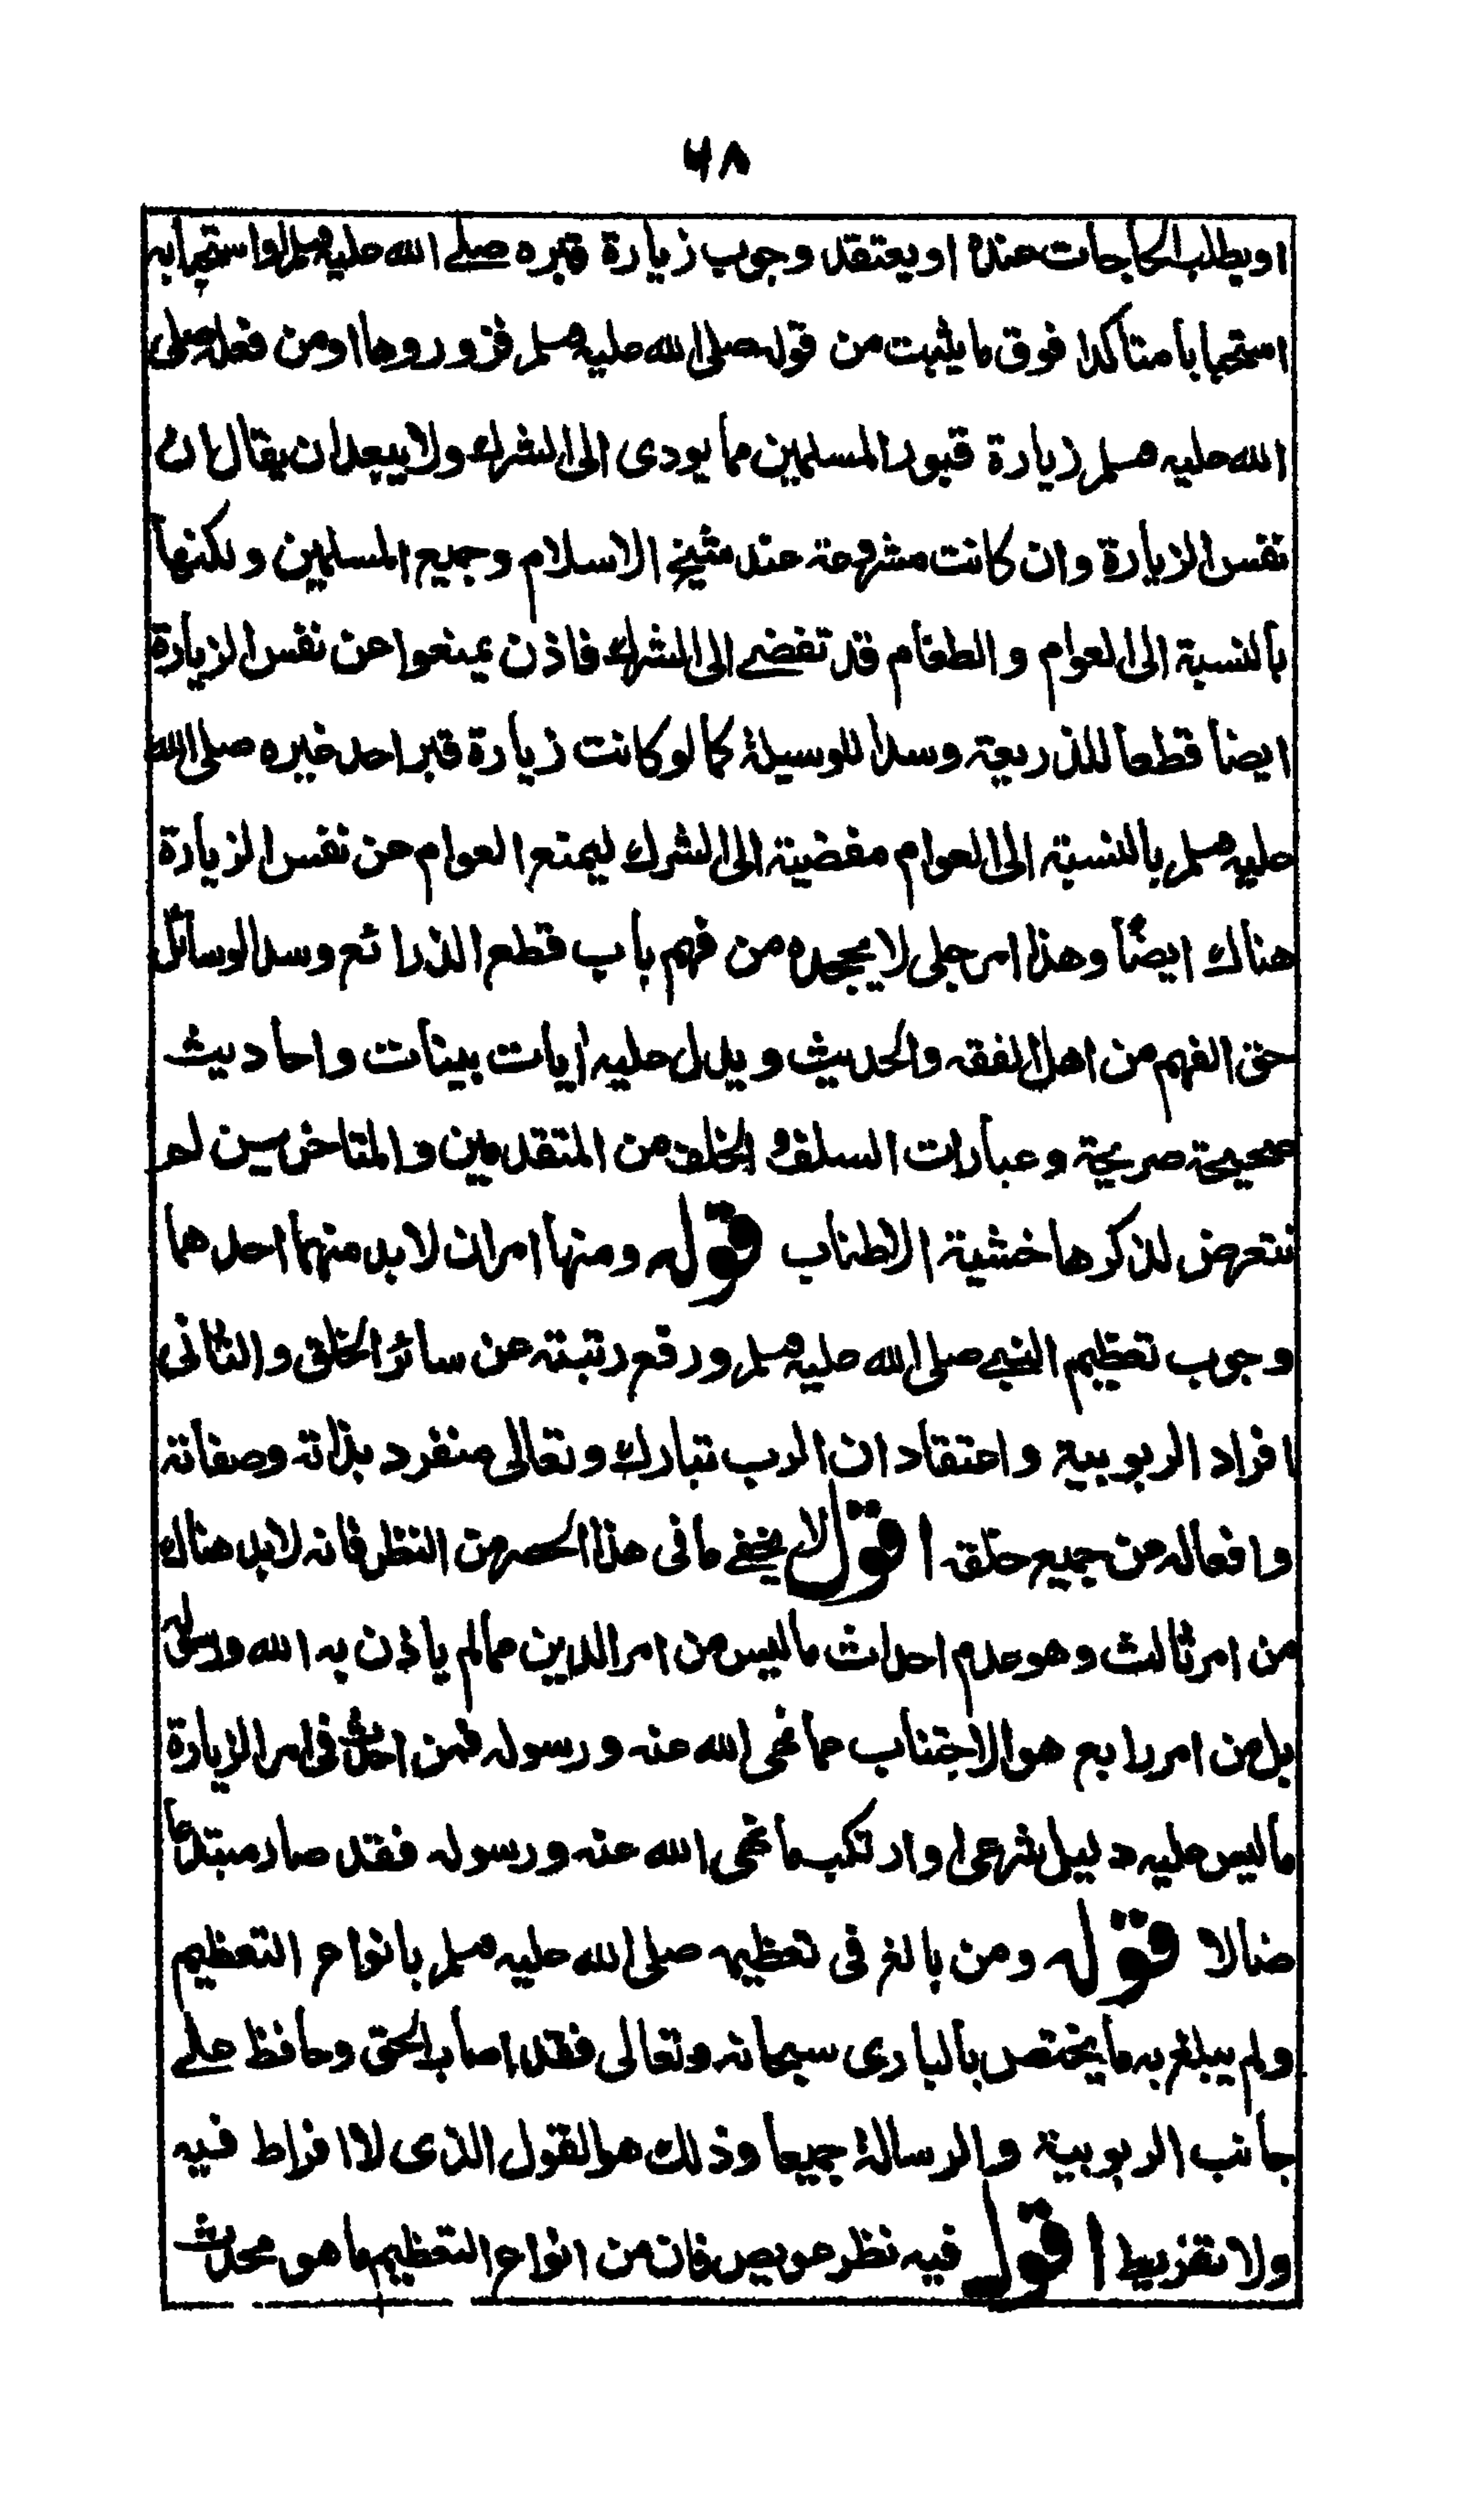 ۶۸
او يطلب الحاجات عنده او يعتقد وجوب زيارة قبره صلے الله عليه وسلم او استحبابه
استحبابا متاكدا فوق ما يثبت من قوله صلى الله عليه وسلم فزوروها او من فعله صلى
الله عليه وسلم زيارة قبور المسلمين مما يودى الى الشرك ولا يبعد ان يقال ان
نفس الزيارة وان كانت مشروعة عند شيخ الاسلام وجميع المسلمين ولكنها
بالنسبة الى العوام والطغام قد تفضے الى الشرك فاذن يمنعوا عن نفس الزيارة
ايضا قطعا للذريعة وسدا للوسيلة كما لو كانت زيارة قبر احد غيره صلى الله
عليه وسلم بالنسبة الى العوام مفضية الى الشرك ليمنع العوام عن نفس الزيارة
هناك ايضًا وهذا امر جلى لا يجحده من فهم باب قطع الذرائع وسد الوسائل
حق الفهم من اهل الفقه والحديث ويدل عليه ايات بينات واحاديث
صحيحة صريحة وعبارات السلف والخلف من المتقدمين والمتاخرين لم
نتعرض لذكرها خشية الاطناب قوله ومنها امران لابد منهما احدهما
وجوب تعظيم النبے صلى الله عليه وسلم ورفع رتبته عن سائر الخلق والثانى
افراد الربوبية واعتقاد ان الرب تبارك وتعالى منفرد بذاته وصفاته
وافعاله من جميع خلقه اقول لا يخفے ما فى هذا الحصر من النظر فانه لابد هناك
من امر ثالث وهو عدم احداث ما ليس من امر الدين مما لم ياذن به الله ورسوله
بل من امر رابع هو الاجتناب عما نهى الله عنه ورسوله فمن احدث فى امر الزيارة
ما ليس عليه دليل شرعى او ارتكب ما نهى الله عنه ورسوله فقد صار مبتدعًا
ضالا قوله ومن بالغ فى تعظيمه صلى الله عليه وسلم بانواع التعظيم
ولم يبلغ به ما يختص بالبارى سبحانه وتعالى فقد اصاب الحق وحافظ علے
جانب الربوبية والرسالة جميعا وذلك هو القول الذى لا افراط فيه
ولا تفريط اقول فيه نظر عويص فان من انواع التعظيم ما هو محدث